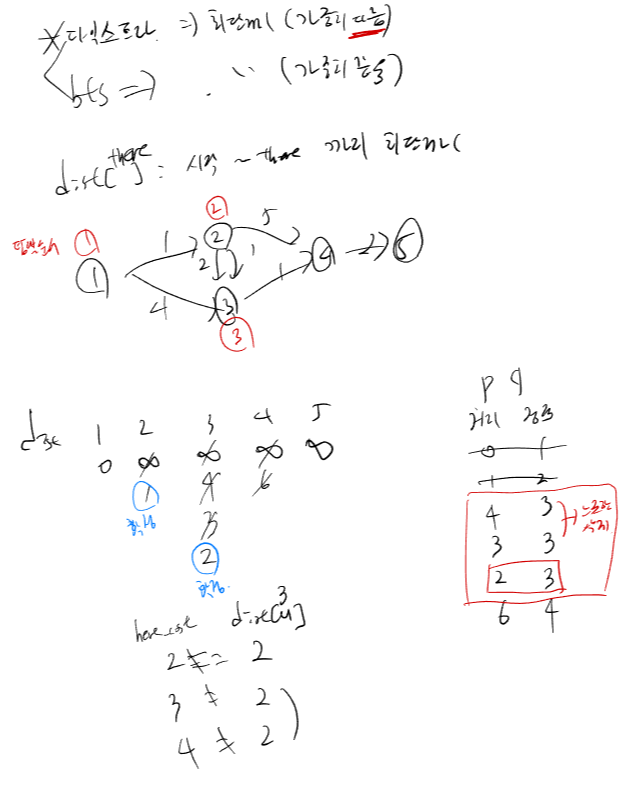 * 다익스트라 => 최단거리 (가중치 다름)
bfs => 〃 (가중치 같음)
dist[there] = 시작 ~ there 까지 최단거리
1 2 3 4 5
1 4 2 1 5 1 2
1 2 3
dist 1 2 3 4 5
0 ∞ ∞ ∞ ∞
1 4 6
확정 3
2
확정
pq
거리 정점
0 1
1 2
4 3
3 3
2 3
6 4
here_cost dist[u] 3
2 == 2
3 ≠ 2
4 ≠ 2